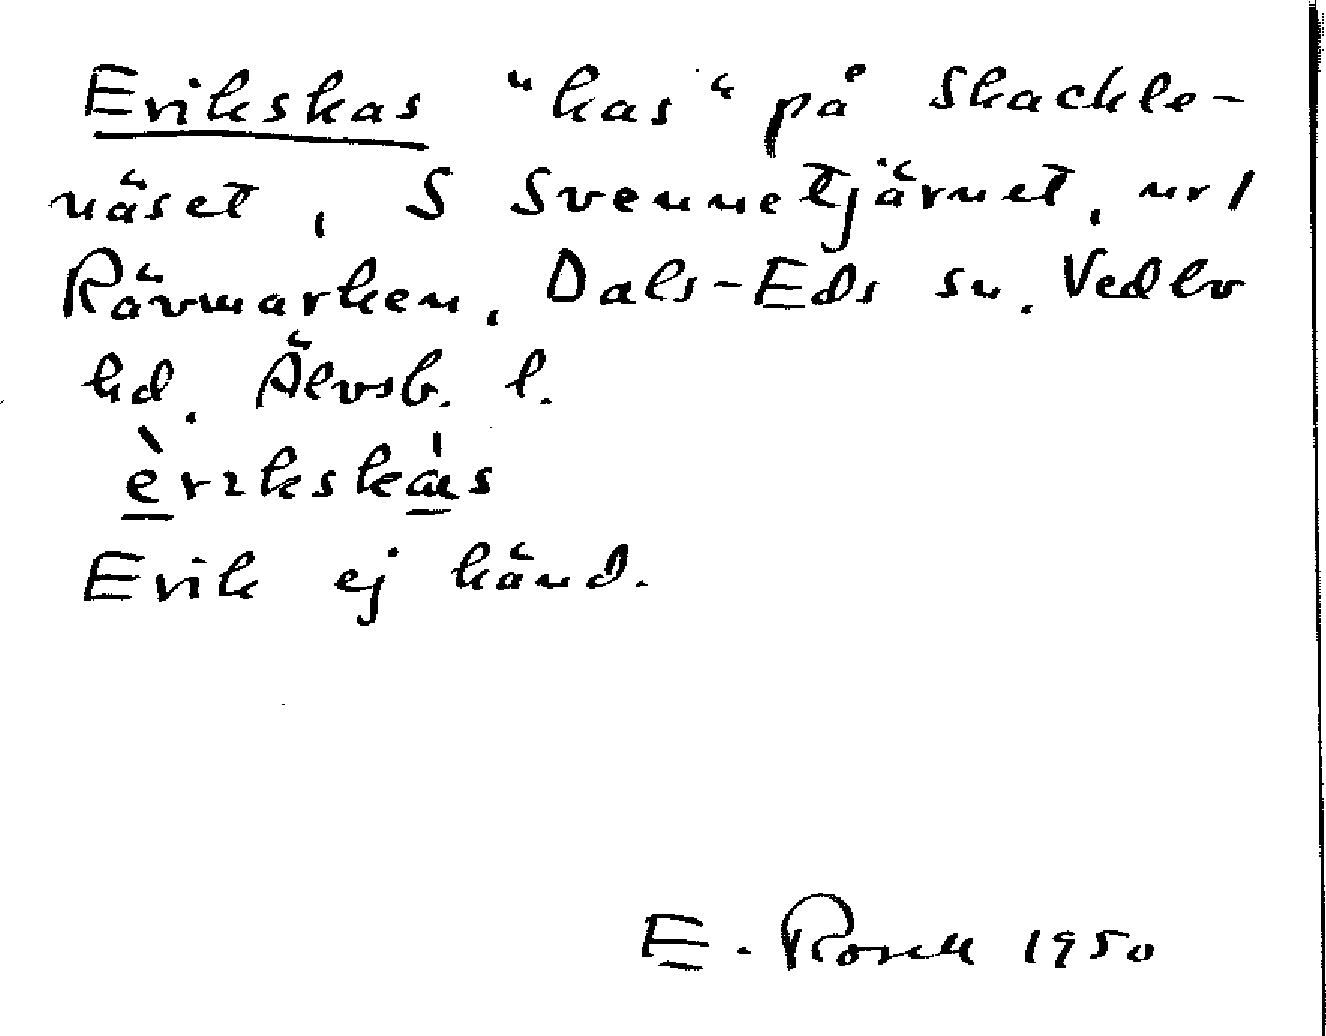 Erikskas "kas" på Skackle-
näset, S Svennetjärnet, nr 1
Rävmarken, Dals-Eds sn. Vedbo
hd. Älvsb. l.
Erik ej känd.
E. Rosell 1950